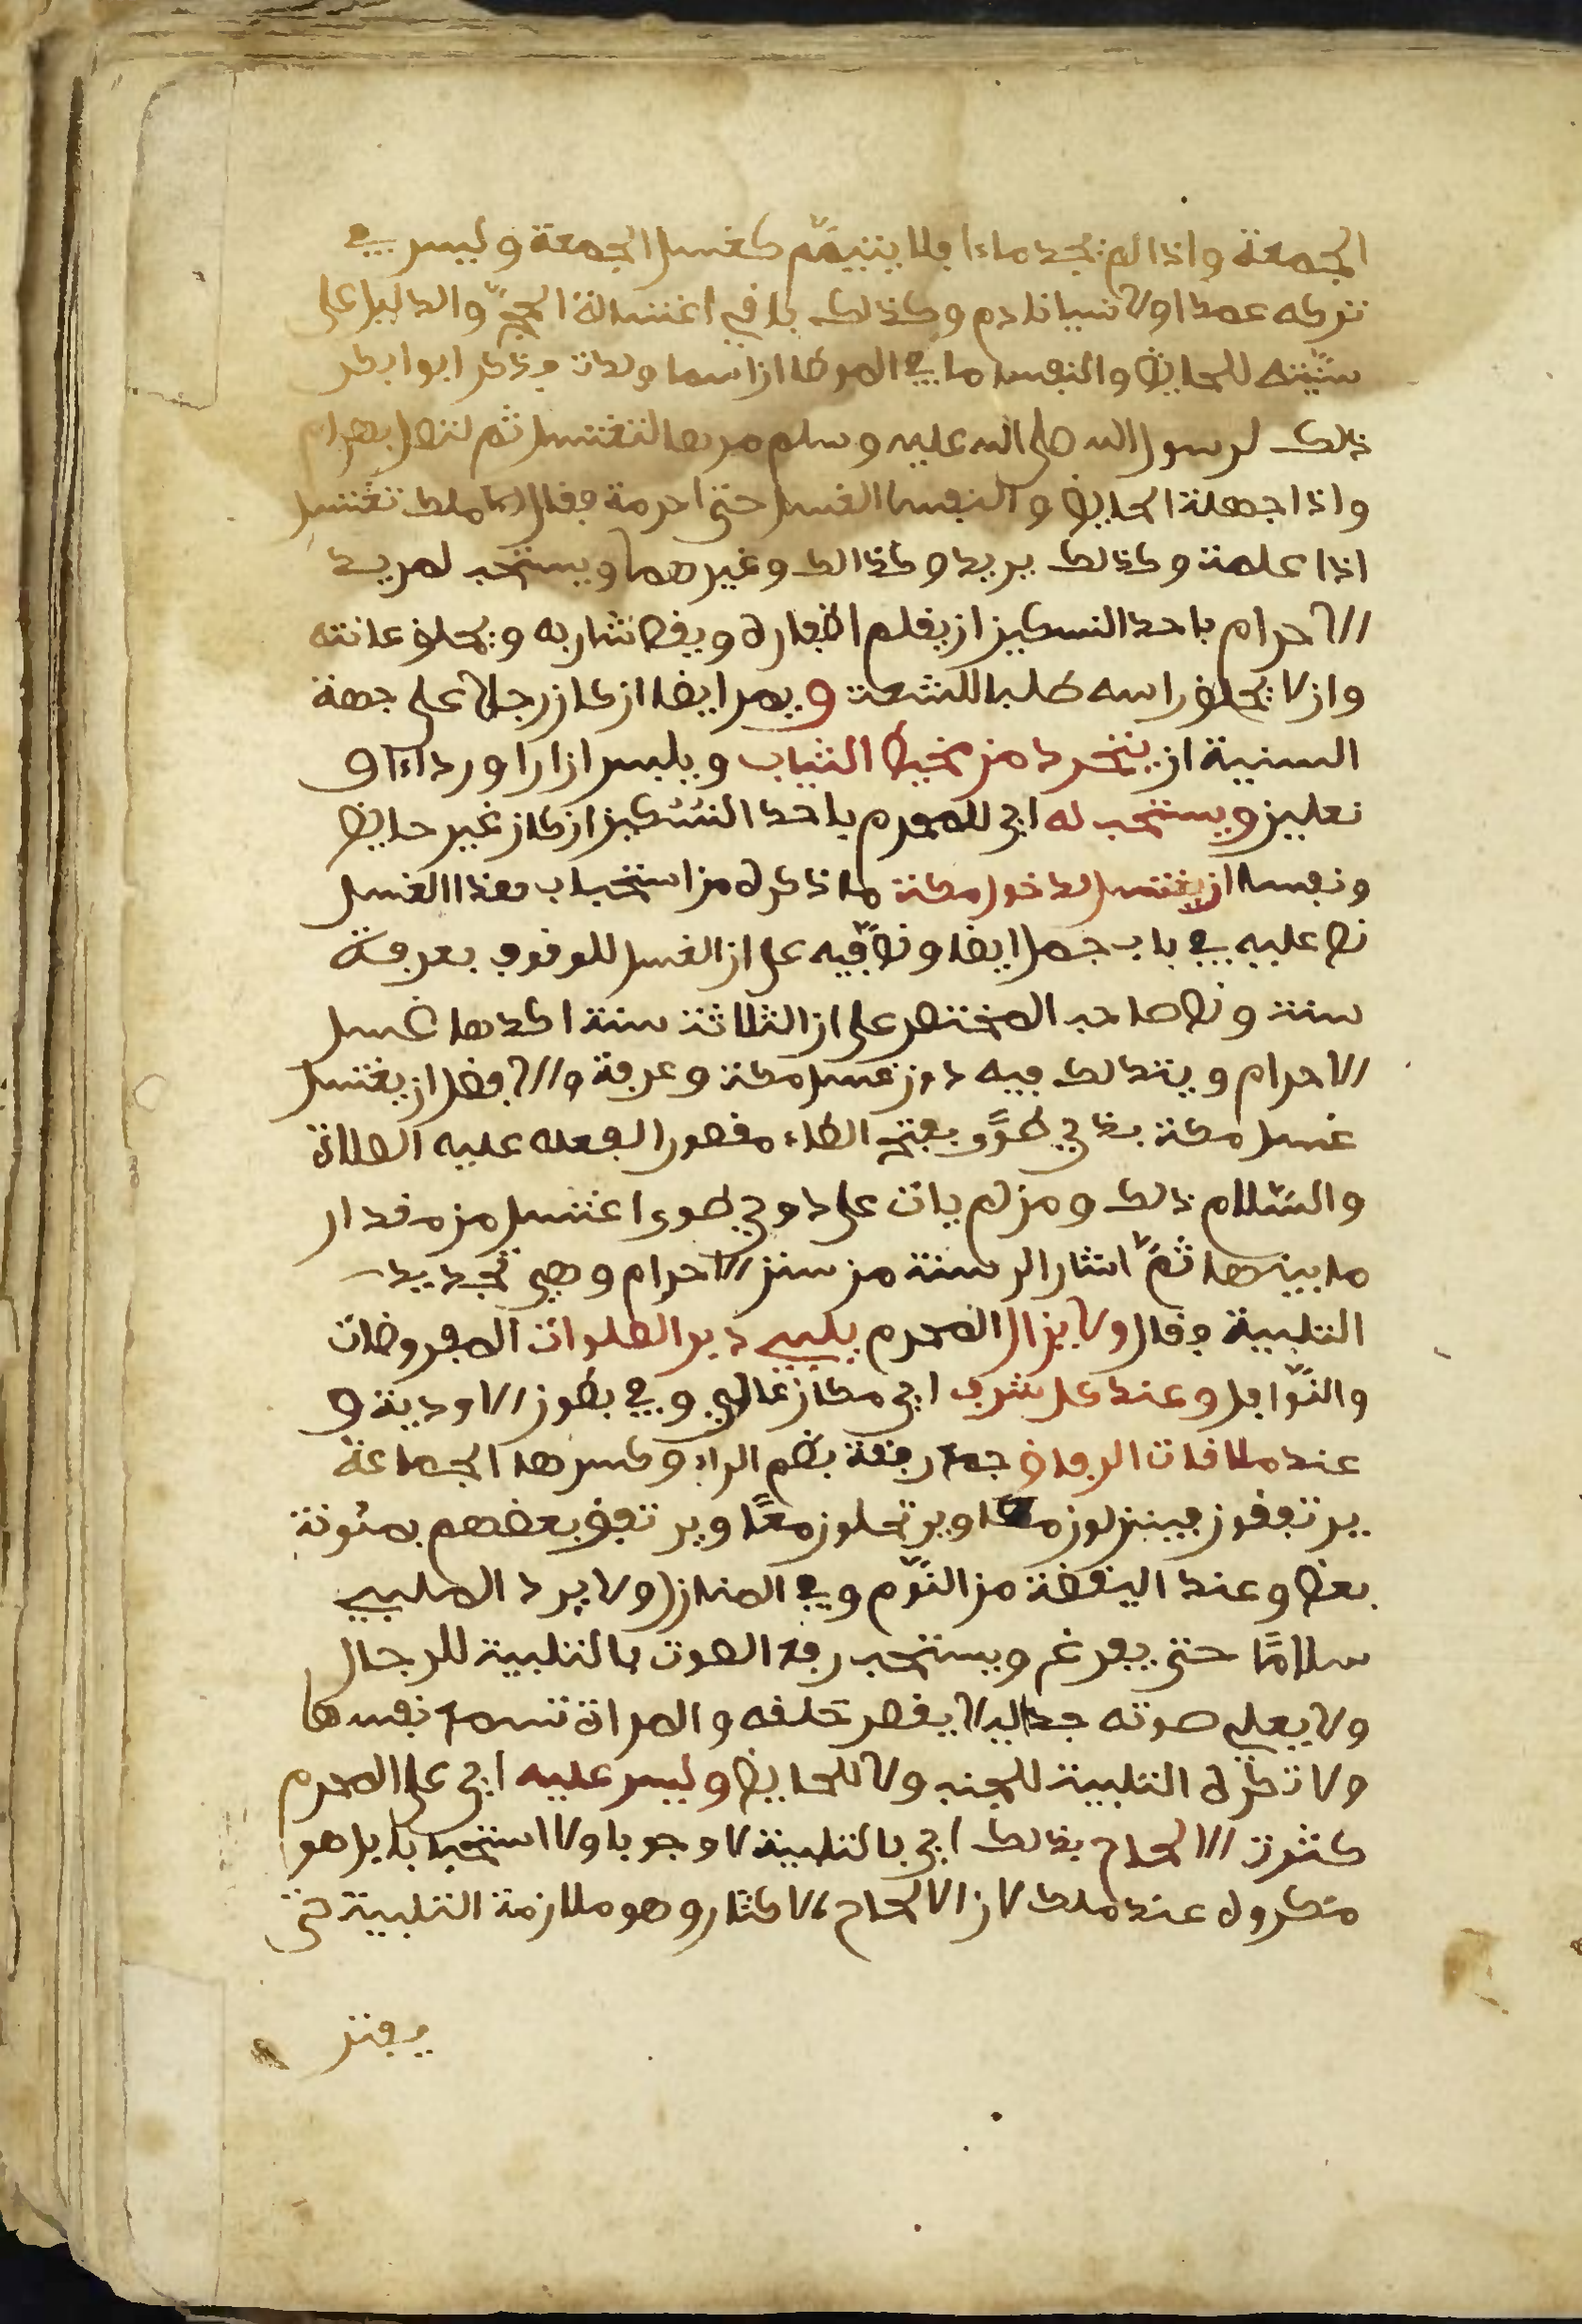 الجمعة واذا لم تجد ماءا فلا يتيمّم كغسل الجمعة وليس في
تركه عمدا ولا نسيانا دم وكذلك باقي اغتسالة الحجّ والدليل على
سنّيته للحايض والنفسا ما في الموطا ان اسما ولدت فذكر ابوا بكر
ذلك لرسول الله صلى الله عليه وسلم مرها لتغتسل ثم لتهل بهرام
واذا جهلة الحايض والنفسا الغسل حتى احرمة فقال مالك تغتسل
اذا علمة وكذلك يريد وكذالك وغيرهما ويستحب لمريد
الاحرام باحد النسكين ان يقلم اظفاره ويقص شاربه ويحلق عانته
وان لا يحلق راسه طلبا للشعث ويومر ايضا ان كان رجلا على جهة
السنية ان يتجرد من مخيط الثياب ويلبس ازارا ورداءا و
نعلين ويستحب له اي للمحرم باحد النسّكين ان كان غير حايض
ونفسا ان يغتسل لدخول مكة ما ذكره من استحباب هذا الغسل
نص عليه في باب جمل ايضا ونصّ فيه على ان الغسل للوقوف بعرفة
سنة ونص صاحب المختصر على ان الثلاثة سنة اكدها غسل
الاحرام ويتدلك فيه دون غسل مكة وعرفة والافضل ان يغتسل
غسل مكة بذي طوًى بفتح الطاء مقصورا لفعله عليه الصلاة
والسّلام ذلك ومن لم يات على ذي طوى اغتسل من مقدار
ما بينهما ثمّ اشار الى سنة من سنن الاحرام وهي تجديد
التلبية فقال ولا يزال المحرم يلبي دبر الصلوات المفروضات
والنّوافل وعند كل شرف اي مكان عالي وفي بطون الاودية و
عند ملاقات الرفاق جمع رفقة بضم الراء وكسرها الجماعة
يرتفقون فينزلون معا ويرتحلون معًا ويرتفق بعضهم بمئونة
بعض وعند اليقظة من النّوم وفي المنازل ولا يرد الملبي
سلامًا حتى يفرغ ويستحب رفع الصوت بالتلبية للرجال
ولا يعلي صوته جدا ليلا يقصر حلقه والمراة تسمع نفسها
ولا تكره التلبية للجنب ولا للحايض وليس عليه اي على المحرم
كثرة الالحاح بذلك اي بالتلبية لا وجوبا ولا استحبابا بل هو
مكروه عند ملك لان الالحاح الاكثار وهو ملازمة التلبية حتى
يفتر